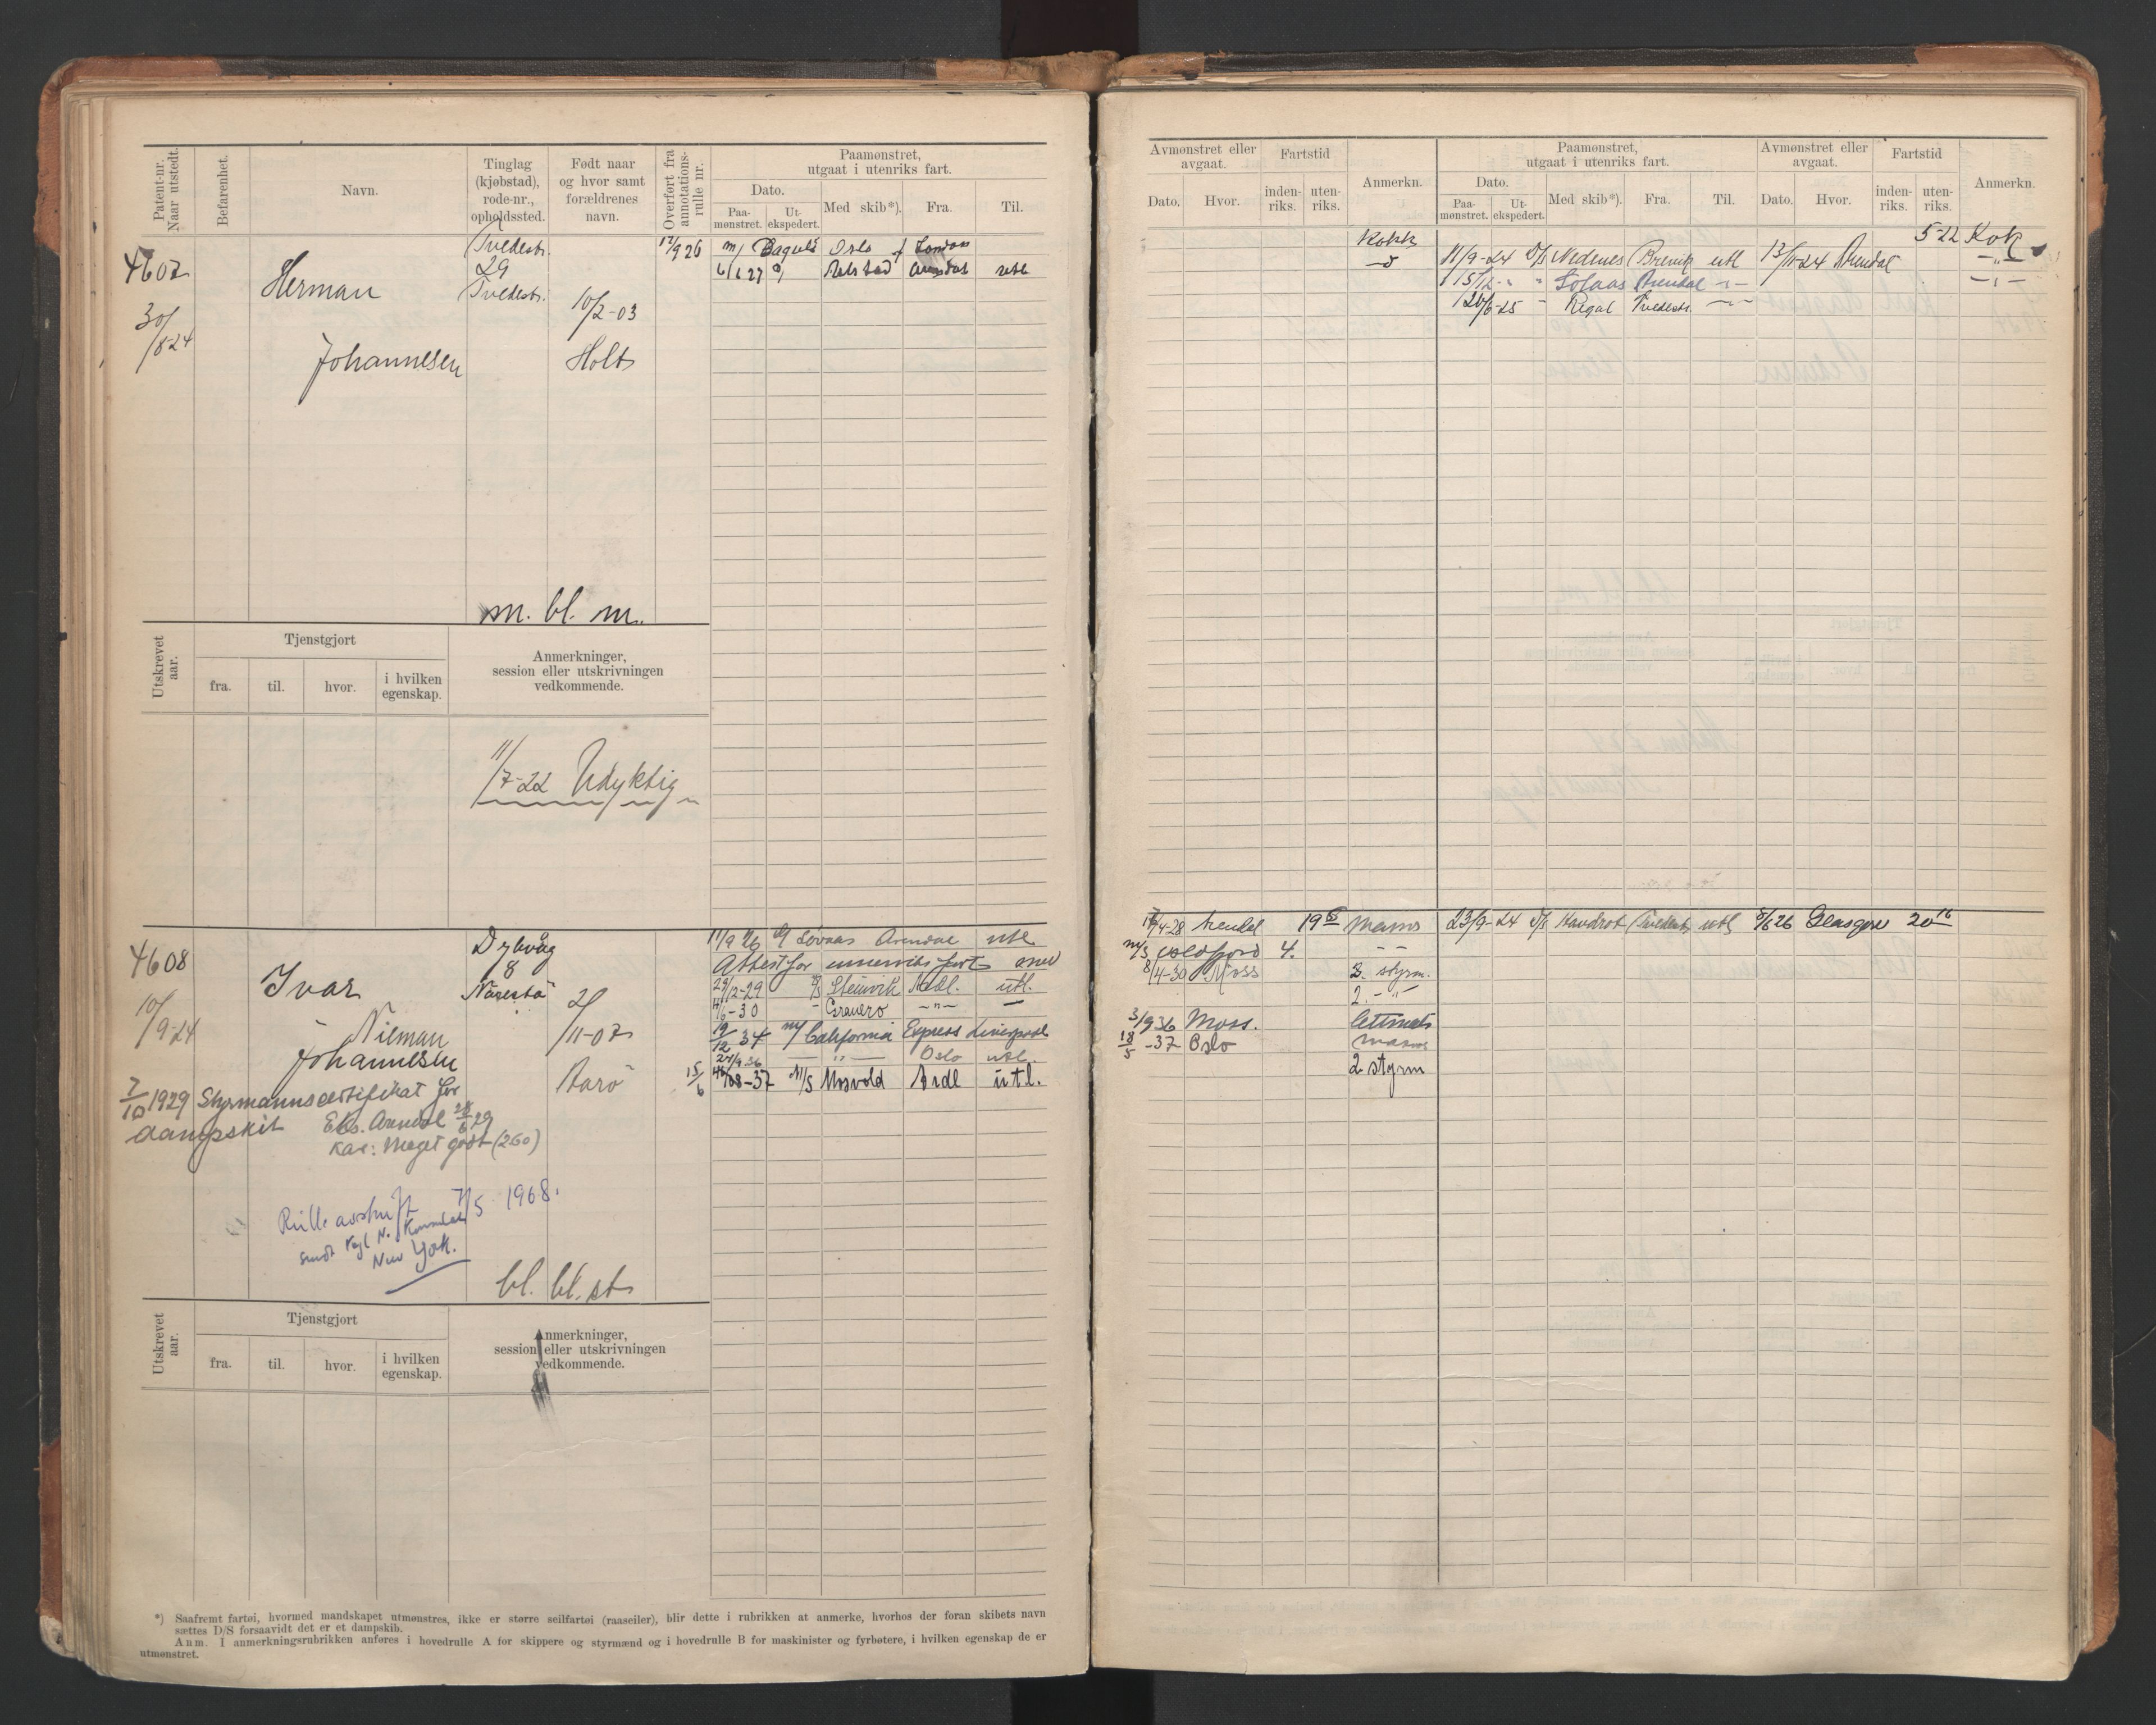 Patent-nr. Naar utstedt.
Befarenhet.
Navn.
Tinglag (kjøbstad), rode-nr., opholdssted.
Født naar og hvor samt forældrenes navn.
Overført fra annotations-rulle nr.
Paamønstret, utgaat i utenriks fart.
Dato.
Paa-mønstret.
Ut-ekspedert.
Med skib*).
Fra.
Til.
4607
30/8-24
Herman
Johannesen
Tvedestr.
29
Tvedestr.
10/2-03
Holt
17/9 26 m/ Oslo London
6/1 27 Arendal utl
m. bl. m.
Utskrevet aar.
Tjenstgjort
fra.
til.
hvor.
i hvilken egenskap.
Anmerkninger, session eller utskrivningen vedkommende.
11/7-22 Udyktig
4608
10/9-24
Ivar
Nieman
Johannesen
Dybvåg
8
Narestø
2/11-07
Borø
11/9 26 Arendal utl
Attest for innenriks fart med
29/12-29 D/S Steinvik Ardl. utl.
-30 - Granero -"-
19/12 34 m/ California Express Liverpool
-"- Oslo utl.
15/6 -37 M/S Mosvold Ardl utl.
7/10 1929 Styrmannscertifikat for
dampskib Eks. Arendal 28/6 29
Kar: Meget godt (260)
Rulleavskrift 7/5 1968.
sendt Kgl N. Konsulat
New York.
bl. bl. st
Utskrevet aar.
Tjenstgjort
fra.
til.
hvor.
i hvilken egenskap.
Anmerkninger, session eller utskrivningen vedkommende.
*) Saafremt fartøi, hvormed mandskapet utmønstres, ikke er større seilfartøi (raaseiler), blir dette i rubrikken at anmerke, hvorhos der foran skibets navn
sættes D/S forsaavidt det er et dampskib.
Anm. I anmerkningsrubrikken anføres i hovedrulle A for skippere og styrmænd og i hovedrulle B for maskinister og fyrbøtere, i hvilken egenskap de er
utmønstret.
Avmønstret eller avgaat.
Dato.
Hvor.
Fartstid
inden-riks.
uten-riks.
Anmerkn.
Paamønstret, utgaat i utenriks fart.
Dato.
Paa-mønstret.
Ut-ekspedert.
Med skib*).
Fra.
Til.
Avmønstret eller avgaat.
Dato.
Hvor.
Fartstid
inden-riks.
uten-riks.
Anmerkn.
Kokk
5-22 Kok
11/9-24 D/S Nedenes Brevik utl 13/11-24 Arendal -"-
15/12 - " Arendal -"- -"-
20/6-25 - Regal Tvedestr. -"-
/4-28 Arendal 19 Matros 23/9-24 D/S Tvedestr utl Glasgow 20
M/S 4. - -
8/4-30 Moss 3. styrm.
2. -"-
3/9 36 Moss. lettmatr
18/5 -37 Oslo matros
2 styrm